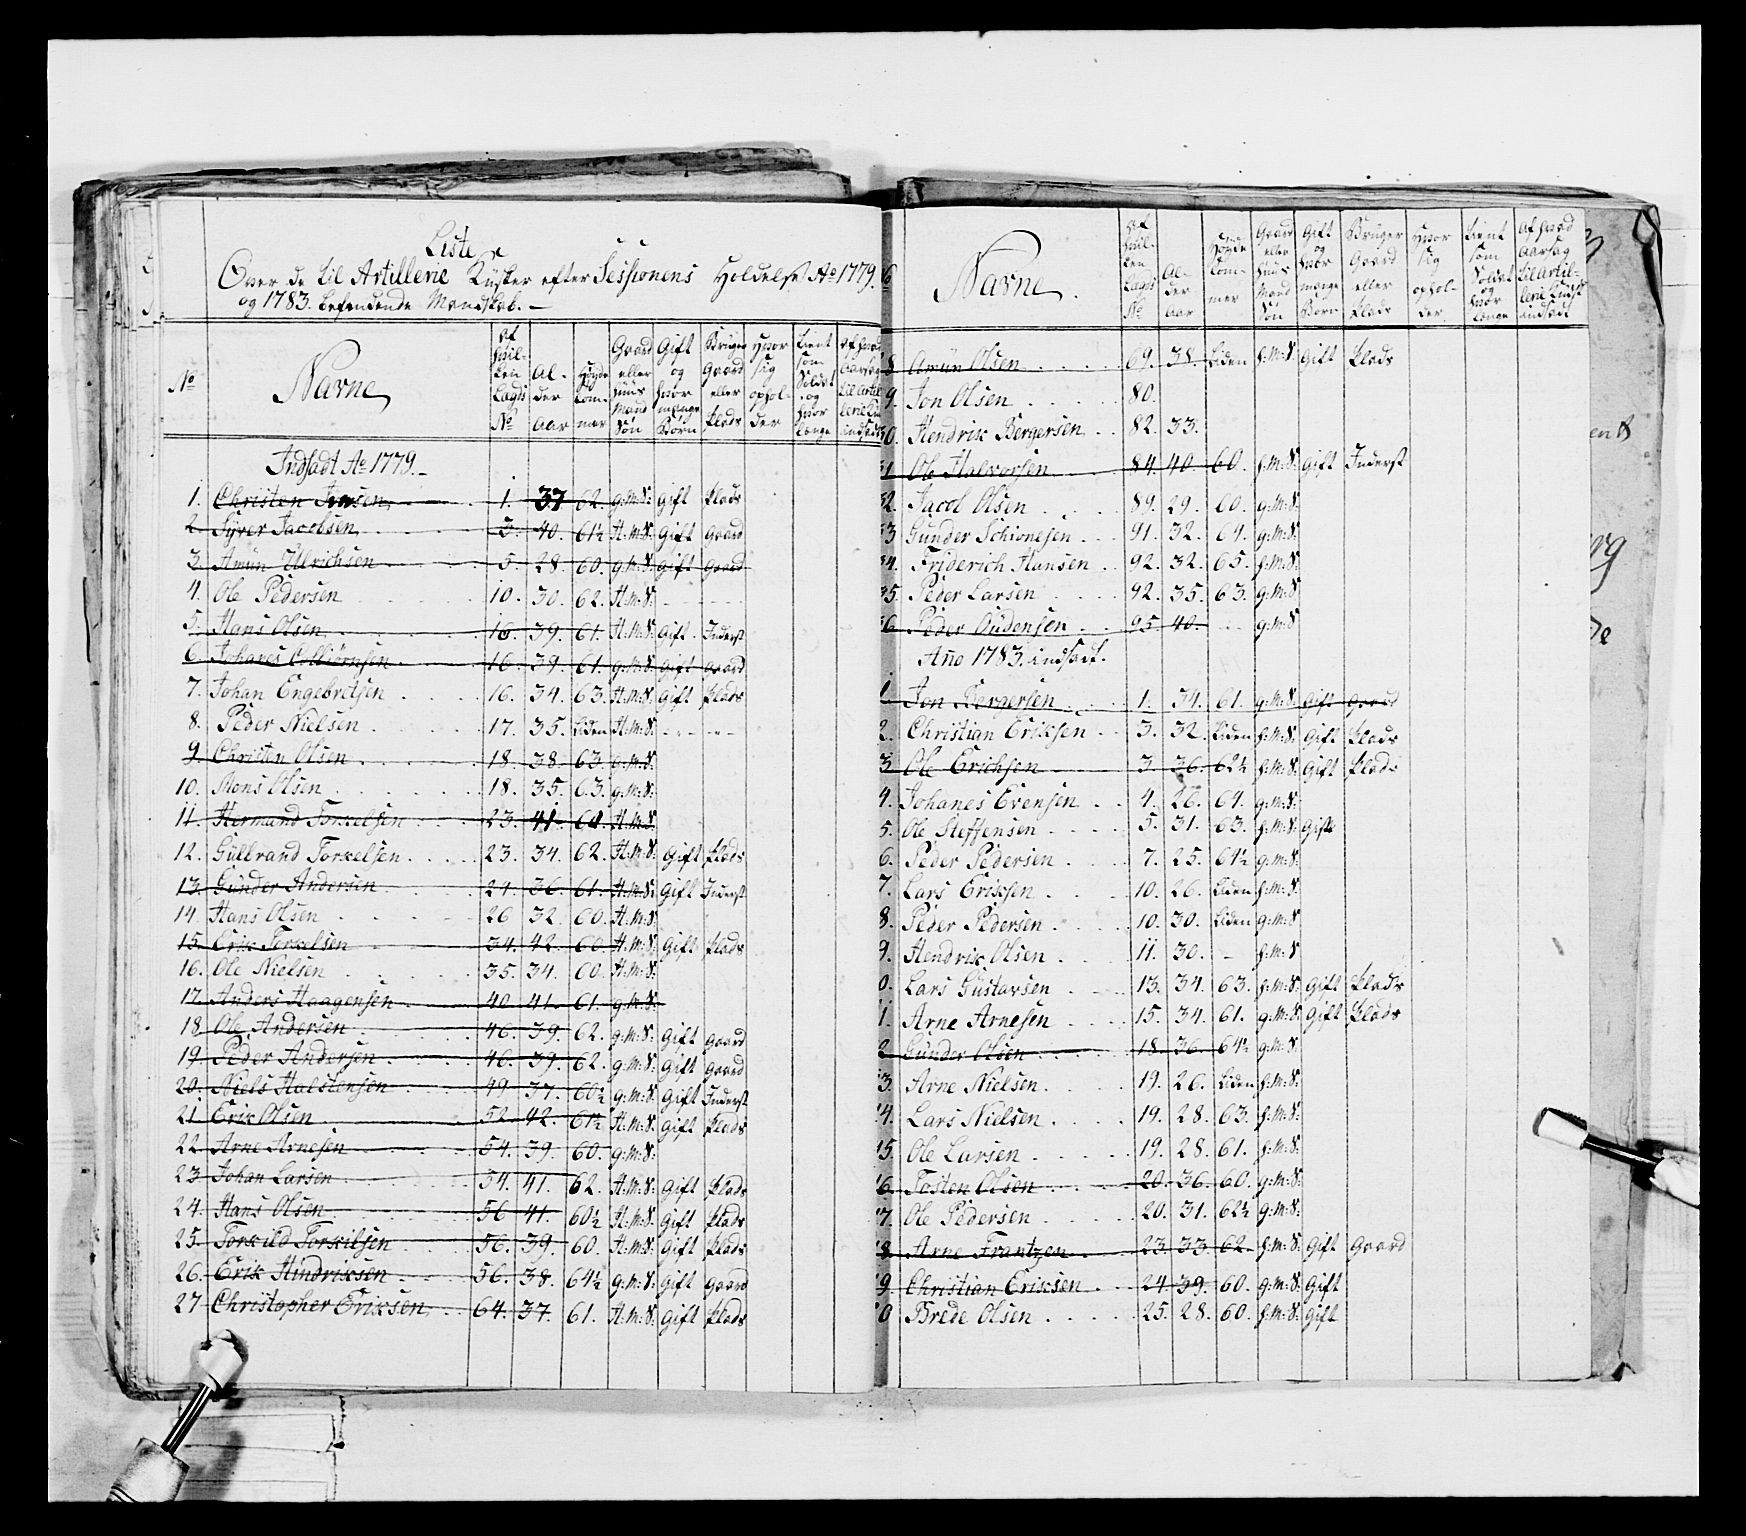 Liste
Over de til Artillerie Kusker efter Sessionens Holdelse Ao 1779.
og 1783. befindende Mandskab. –
No
Navne
Af hvilken Lægds No
Alder Aar
Høyde Tommer
Gaard eller Huus Mand Søn
Gift og hvor mange Børn
Bruger Gaard eller Plads
Hvor sig opholder
Tient som Soldat og hvor længe
Af hvad Aarsag til Artillerie Kusk indsadt
Indsadt Ao 1779. –
1. Christen Jensen 1. 37 62. g:m:S: Gift Plads
2. Syver Jacobsen 5. 40. 61½ H:m:S: Gift Gaard
3. Amun Ulrichsen 5. 28. 60. g:m:S: Gift Gaard
4. Ole Pedersen 10. 30. 62. H:m:S:
5. Hans Olsen 16. 39. 61. H:m:S: Gift. Inderst
6. Johanes Colbiørnsen 16. 39. 61. g:m:S: Gift Gaard
7. Johan Engebretsen 16. 34. 63. H:m:S: Gift Plads
8. Peder Nielsen 17. 35. Liden H:m:S:
9. Christen Olsen 18. 38. 63. g:m:S:
10. Mons Olsen 18. 35. 63. g:m:S:
11. Hermand Torkelsen 23. 41. 60. H:m:S
12. Gullrand Torkelsen 23. 34. 62. H:m:S: Gift Plads
13. Gunder Andersen 24. 36. 61. H:m:S: Gift Inderst
14. Hans Olsen 26 32. 60. H:m:S
15. Erik Torkelsen 34. 42. 60. H:m:S: Gift Plads
16. Ole Nielsen 35. 34. 60. H:m:S:
17. Anders Haagensen 40. 41. 61. g:m:S:
18. Ole Andersen 46. 39. 62. g:m:S: Gift Gaard
19. Peder Andersen 46. 39. 62. g:m:S: Gift Gaard
20. Niels Halstensen 49 37. 60½ g:m:S: Gift Inderst
21. Erik Olsen 52. 42. 61½ H:m:S: Gift Plads
22. Arne Arnesen 54. 39. 60. g:m:S:
23 Johan Larsen 54. 41. 62. H:m:S: Gift Plads
24. Hans Olsen 56 41. 60½ H:m:S. Gift Plads
25. Torkild Torkilsen 56. 39. 60. H:m:S: Gift Plads
26. Erik Hindriksen 56. 38. 64½ g:m:S: Gift Gaard
27 Christopher Eriksen 64. 37. 61. H:m:S: Gift Plads
Navne
Af hvilken Lægds No
Alder Aar
Høyde Tommer
Gaard eller Huus Mand Søn
Gift og hvor mange Børn
Bruger Gaard eller Plads
Hvor sig opholder
Tient som Soldat og hvor længe
Af hvad Aarsag til Artillerie Kusk indsadt
8 Amun Olsen 69. 38. Liden H:m:S: Gift Plads
9. Jon Olsen 80.
30. Hendrik Bergersen 82. 33.
31 Ole Halvorsen 84. 40. 60. H:m:S: Gift Inderst
32. Jacob Olsen 89. 29. 60. g:m:S:
33 Gunder Schionesen 91. 32. 64. g:m:S:
34. Friderich Hansen 92. 32. 65. g:m:S:
35. Peder Larsen 92. 35. 63. g:m:S
36 Peder Oudensen 95. 40. g:m:S
Año 1783. indsadt.
1 Jon Borgersen 1. 34. 61. g:m:S: Gift Gaard
2. Christian Eriksen 3. 32. Liden H:m:S: Gift Plads
3 Ole Erichsen 3. 36. 62½ H:m:S: Gift Plads
4. Johanes Evensen 4. 26. 64. g:m:S:
5. Ole Steffensen 5. 31. 63. H:m:S: Gift
6. Peder Pedersen 7. 25. 61½ g:m:S:
7. Lars Eriksen 10. 26. Liden H:m:S:
8. Peder Pedersen 10. 30. Liden g:m:S
9. Hendrik Olsen 11. 30. – H:m:S
0. Lars Gustavsen 13. 34. 63. H:m:S: Gift Plads
1. Arne Arnesen 15. 34. 61. g:m:S: Gift Plads
2 Gunder Olsen 18. 36. 64½ g:m:S:
13. Arne Nielsen 19. 26. Liden H:m:S:
14. Lars Nielsen 19. 28. 63. H:m:S:
15. Ole Larsen 19. 28. 61. H:m:S:
16. Tosten Olsen 20. 36. 60. g:m:S:
17. Ole Pedersen 20. 31. 62½ g:m:S:
18. Arne Frantzen 23. 33. 62. H:m:S: Gift Gaard
19 Christian Eriksen 24. 39. 60. g:m:S. Gift
0 Brede Olsen 25. 28. 60. H:m:S: Gift